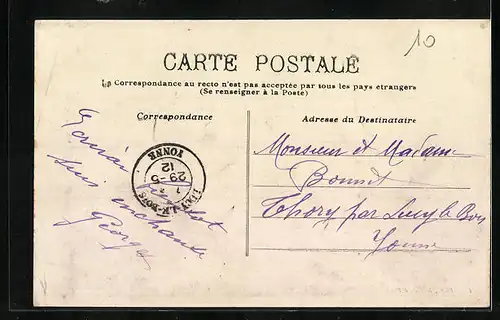 10
CARTE POSTALE
La Correspondance au recto n'est pas acceptée par tous les pays étrangers
(Se renseigner à la Poste)
Correspondance
Adresse du Destinataire
suis enchanté
Georges
LUCY-LE-BOIS
29-5
12
YONNE
Monsieur et Madame
Bonnet
Thory par Lucy le Bois
Yonne